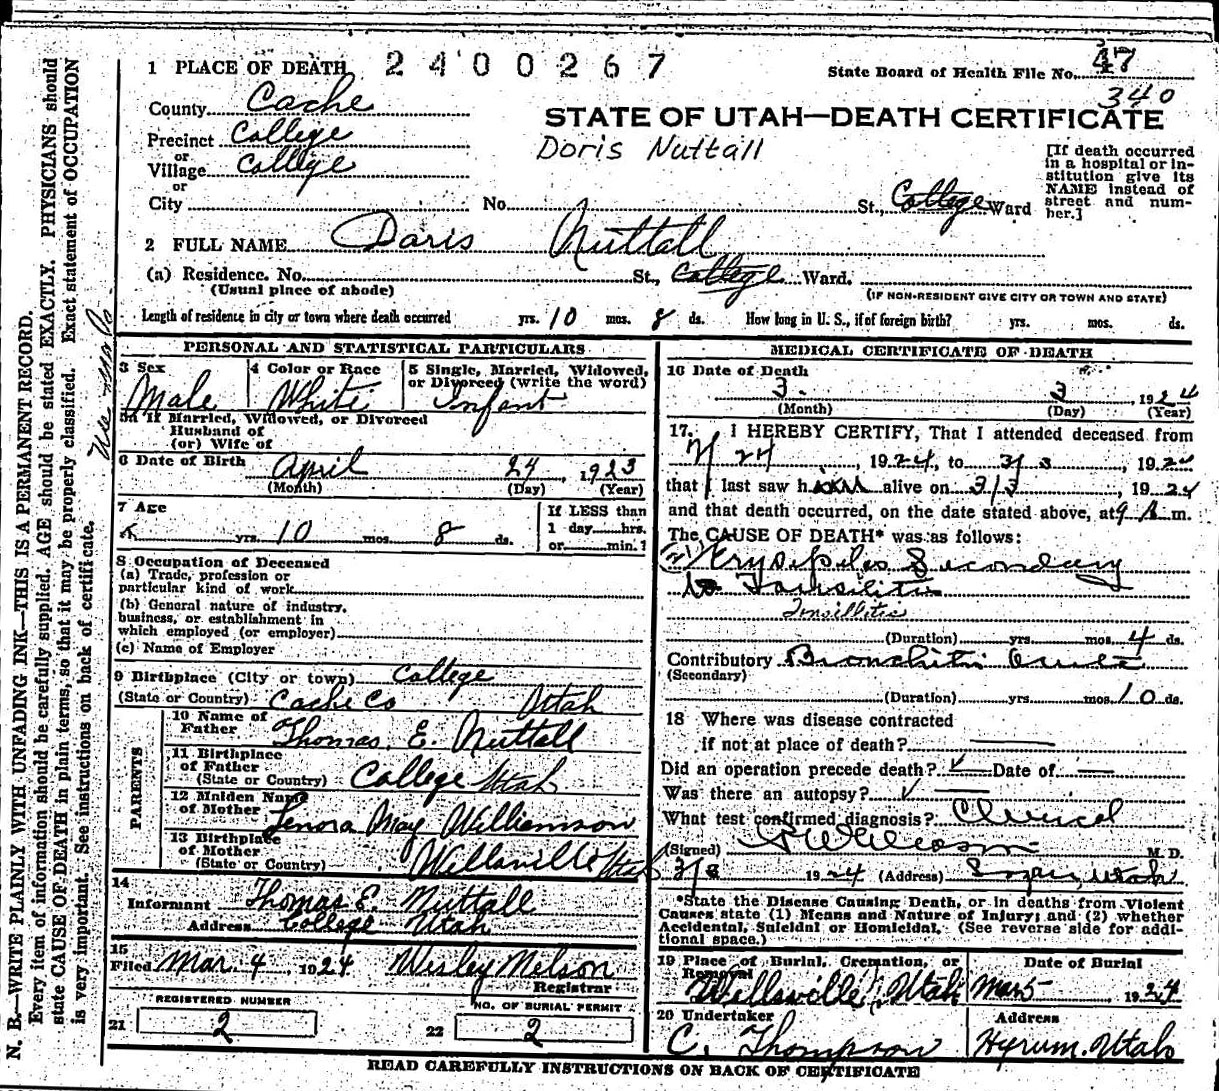 1 PLACE OF DEATH 2400267
State Board of Health File No. 47
340
County Cache
STATE OF UTAH—DEATH CERTIFICATE
Precinct College
Doris Nuttall
or
Village College
or
City No. St., College Ward
[If death occurred
in a hospital or in-
stitution give its
NAME instead of
street and num-
ber.]
2 FULL NAME Doris Nuttall
(a) Residence. No. St., College Ward.
(Usual place of abode)
(IF NON-RESIDENT GIVE CITY OR TOWN AND STATE)
Length of residence in city or town where death occurred yrs. 10 mos. 8 ds. How long in U. S., if of foreign birth? yrs. mos. ds.
PERSONAL AND STATISTICAL PARTICULARS
3 Sex
Male
4 Color or Race
White
5 Single, Married, Widowed,
or Divorced (write the word)
Infant
5a If Married, Widowed, or Divorced
Husband of
(or) Wife of
6 Date of Birth April 24, 1923
(Month) (Day) (Year)
7 Age
yrs. 10 mos. 8 ds.
If LESS than
1 day hrs.
or min.?
8 Occupation of Deceased
(a) Trade, profession or
particular kind of work
(b) General nature of industry,
business, or establishment in
which employed (or employer)
(c) Name of Employer
9 Birthplace (City or town) College
(State or Country) Cache Co Utah
PARENTS
10 Name of
Father Thomas E. Nuttall
11 Birthplace
of Father
(State or Country) College Utah
12 Maiden Name
of Mother Lenora May Williamson
13 Birthplace
of Mother
(State or Country) Wellsville Utah
14
Informant Thomas E. Nuttall
Address College Utah
15
Filed Mar. 4, 1924 Wesley Nelson
Registrar
REGISTERED NUMBER
21 2
NO. OF BURIAL PERMIT
22 2
MEDICAL CERTIFICATE OF DEATH
16 Date of Death
3. 3., 1924
(Month) (Day) (Year)
17. I HEREBY CERTIFY, That I attended deceased from
24, 1924, to 3/3, 1924
that I last saw h alive on 3/3, 1924
and that death occurred, on the date stated above, at 9 A.m.
The CAUSE OF DEATH* was as follows:
Erysipelas Secondary
to Tonsilitis
Tonsillitis
(Duration) yrs. mos. 4 ds.
Contributory Bronchitis Acute
(Secondary)
(Duration) yrs. mos. 10 ds.
18 Where was disease contracted
if not at place of death?
Did an operation precede death? Date of
Was there an autopsy?
What test confirmed diagnosis? Clinical
(Signed) M. D.
1924 (Address) Logan, Utah
*State the Disease Causing Death, or in deaths from Violent
Causes state (1) Means and Nature of Injury; and (2) whether
Accidental, Suicidal or Homicidal. (See reverse side for addi-
tional space.)
19 Place of Burial, Cremation, or
Removal
Wellsville, Utah
Date of Burial
Mar 5 1924
20 Undertaker
C. Thompson
Address
Hyrum, Utah
READ CAREFULLY INSTRUCTIONS ON BACK OF CERTIFICATE
N. B.—WRITE PLAINLY WITH UNFADING INK—THIS IS A PERMANENT RECORD.
Every item of information should be carefully supplied. AGE should be stated EXACTLY. PHYSICIANS should
state CAUSE OF DEATH in plain terms, so that it may be properly classified. Exact statement of OCCUPATION
is very important. See instructions on back of certificate.